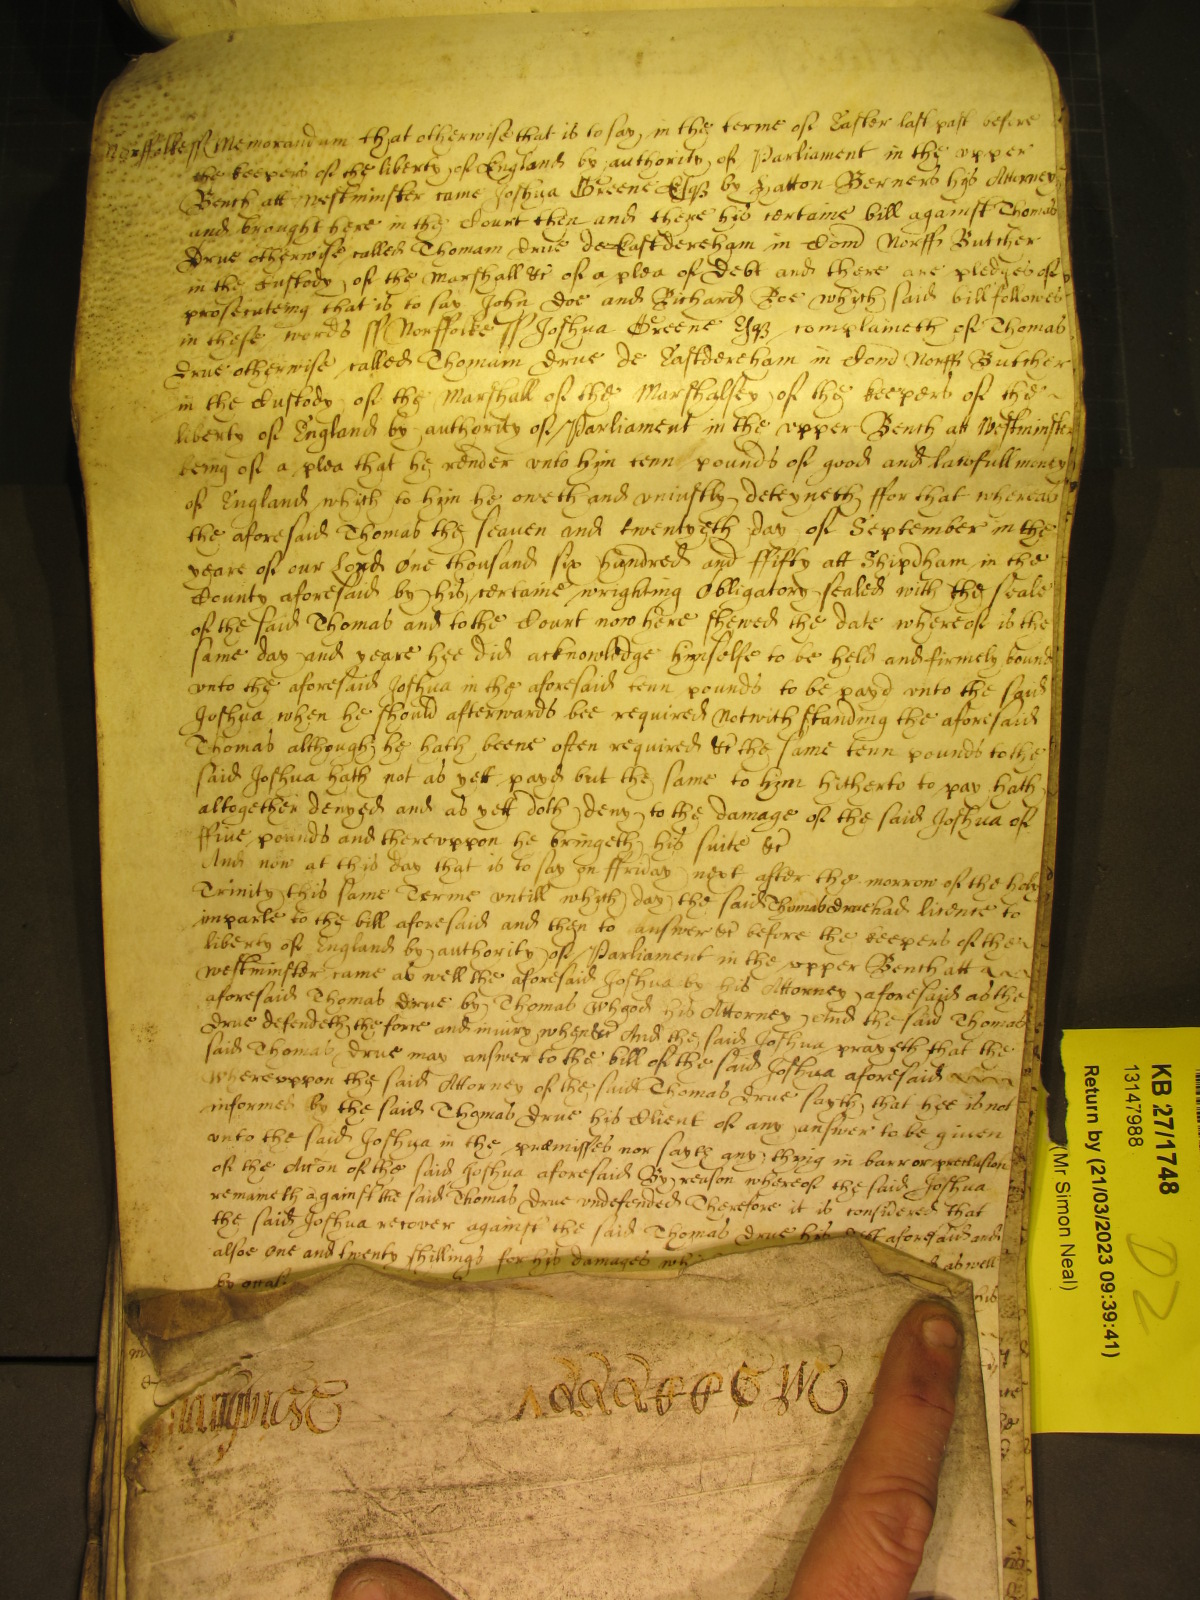 Norffolke ss Memorandum that otherwise that is to say in the terme of Easter last past before
the keepers of the liberty of England by authority of Parliament in the upper
Bench att Westminster came Joshua Greene Esqr by Hatton Berners his Attorney
and brought here in the Court then and there his certaine bill against Thomas
Drue otherwise called Thomam Drue de Eastdereham in Comd Norff Butcher
in the custody of the Marshall &c of a plea of Debt and there are pledges of
prosecuteing that is to say John Doe and Richard Roe which said bill followes
in these words ss Norffolke ss Joshua Greene Esqr complaineth of Thomas
Drue otherwise called Thomam Drue de Eastdereham in Comd Norff Butcher
in the Custody of the Marshall of the Marshalsey of the keepers of the
liberty of England by authority of Parliament in the upper Bench att Westminster
being of a plea that he render unto him tenn pounds of good and lawfull money
of England which to him he oweth and uniustly deteyneth ffor that whereas
the aforesaid Thomas the seaven and twentyeth day of September in the
yeare of our Lord One thousand six hundred and ffifty att Shipdham in the
County aforesaid by his certaine wrighting Obligatory sealed with the seale
of the said Thomas and to the Court now here shewed the date whereof is the
same day and yeare hee did acknowledge himselfe to be held and firmely bound
unto the aforesaid Joshua in the aforesaid tenn pounds to be payd unto the said
Joshua when he should afterwards bee required Notwithstanding the aforesaid
Thomas although he hath beene often required &c the same tenn pounds to the
said Joshua hath not as yett payd but the same to him hitherto to pay hath
altogether denyed and as yett doth deny to the damage of the said Joshua of
ffiue pounds and thereuppon he bringeth his suite &c
And now at this day that is to say on ffriday next after the morrow of the holy
Trinity this same Terme untill which day the said Thomas Drue had licence to
imparle to the bill aforesaid and then to answer &c before the keepers of the
liberty of England by authority of Parliament in the upper Bench att
Westminster came as well the aforesaid Joshua by his Attorney aforesaid as the
aforesaid Thomas Drue by Thomas his Attorney And the said Thomas
Drue defendeth the force and iniury when &c And the said Joshua prayeth that the
said Thomas Drue may answer to the bill of the said Joshua aforesaid
Whereuppon the said Attorney of the said Thomas Drue sayth that hee is not
informed by the said Thomas Drue his Client of any answer to be given
unto the said Joshua in the premisses nor sayth any thing in barr or preclusion
of the Accon of the said Joshua aforesaid By reason whereof the said Joshua
remaineth against the said Thomas Drue undefended Therefore it is considered that
the said Joshua recover against the said Thomas Drue his Debt aforesaid and
alsoe One and twenty shillings for his damages as well
by
KB 27/1748
13147988
Return by (21/03/2023 09:39:41)
(Mr Simon Neal)
D2